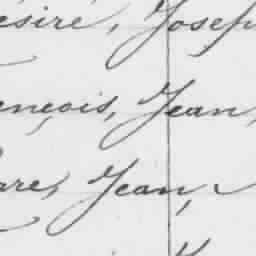 ésiré, Josep
ençois, Jean,
are, Jean,